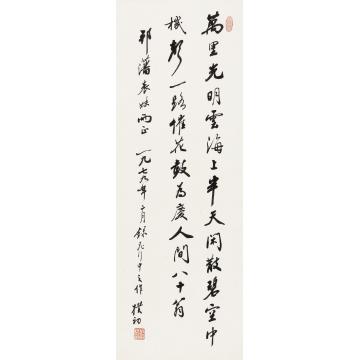 萬里光明雲海上半天閑散碧空中
機聲一路催花鼓為慶人間八十翁
表妹兩正 一九七九年十月錄飛行中之作 樸初